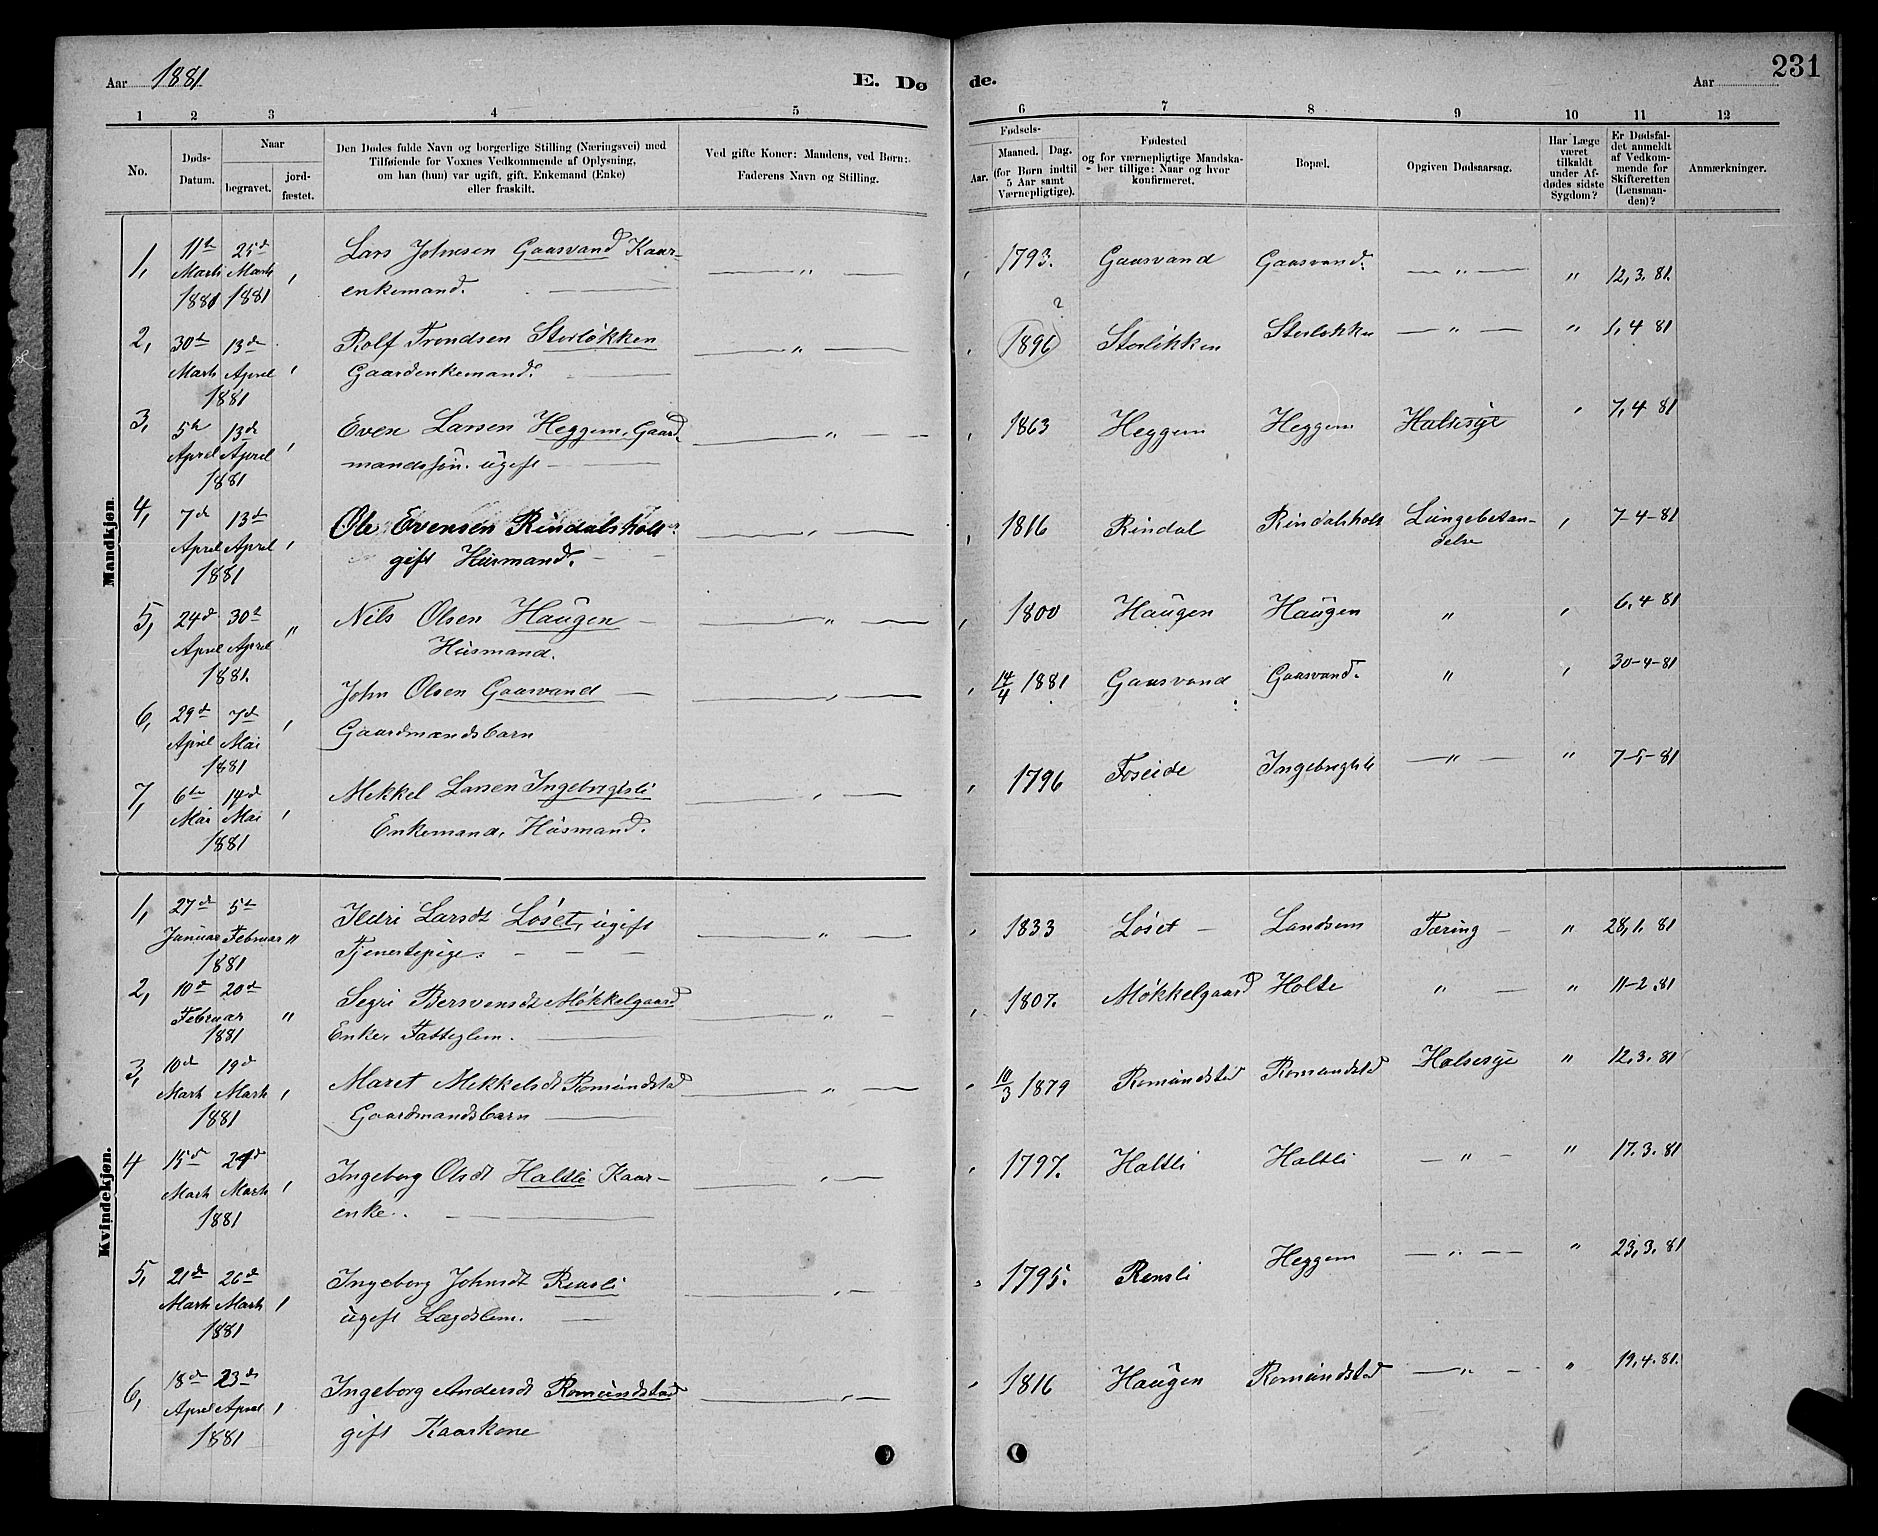 Aar 1881
E. Dø
de.
Aar
231
1 2 3 4 5 6 7 8 9 10 11 12
No.
Døds-
Datum.
Naar
begravet.
jord-
fæstet.
Den Dødes fulde Navn og borgerlige Stilling (Næringsvei) med
Tilføiende for Voxnes Vedkommende af Oplysning,
om han (hun) var ugift, gift, Enkemand (Enke)
eller fraskilt.
Ved gifte Koner: Mandens, ved Børn:
Faderens Navn og Stilling.
Fødsels-
Aar.
Maaned. Dag.
(for Børn indtil
5 Aar samt
Værnepligtige).
Fødested
og for værnepligtige Mandska-
ber tillige: Naar og hvor
konfirmeret.
Bopæl.
Opgiven Dødsaarsag.
Har Læge
været
tilkaldt
under Af-
dødes sidste
Sygdom?
Er Dødsfal-
det anmeldt
af Vedkom-
mende for
Skifteretten
(Lensman-
den)?
Anmærkninger.
Mandkjøn.
1, 11te Marts 1881 25de Marts 1881 , Lars Johnsen Gaasvand Kaar-
enkemand. — " — , 1793. Gaasvand Gaasvand. — " — " 12,3.81.
2, 30te Marts 13de April 1881 , Rolf Trondsen Storløkken
Gaardenkemand. — " — , 1896 ? Storløkken Storløkken — " — " 1,4 81
3, 5te April 13de April 1881 , Even Larsen Heggem, Gaard-
mandssøn. ugift — " — , 1863 Heggem Heggem Halsesyge , 7,4 81
4, 7de April 13de April 1881 , Ole Evensen Rindalsholt
gift Husmand. — , 1816 Rindal Rindalsholt Lungebetæn-
delse , 7-4-81
5, 24de April 30te April 1881. " Nils Olsen Haugen —
Husmand. — " — , 1800 Haugen Haugen " , 6,4 81
6, 29de April 7de Mai 1881 , John Olsen Gaasvand —
Gaardmandsbarn — , — , 14/4 1881 Gaasvand Gaasvand. " , 30-4-81
7, 6te Mai 14de Mai 1881 , Mikkel Larsen Ingebrigtsli
Enkemand, Husmand. — , — , 1796 Foseide Ingebrigtsli — " — " 7-5-81
Kvindekjøn.
1, 27de Januar 5te Februar 1881 " Ildri Larsdt Løset, ugift
Tjenestepige. — " — , 1833 Løset — Landsem Tæring — " 28,1.81
2, 10de Februar 20de 1881 " Segri Bersvensdt Møkkelgaard
Enke, Fattiglem. — " — , 1807. Møkkelgaard Holte " — " 11-2.81
3, 10de Marts 19de Marts 1881 , Maret Mikkelsdt Romundstad
Gaardmandsbarn — " — , 10/3 1879 Romundstad Romundstad Halsesyge " 12.3.81
4 15de Marts 24de Marts 1881 , Ingeborg Olsdt Haltli Kaar-
enke. — , — , 1797. Haltli Haltli — " — " 17.3.81
5, 21de Marts 26de Marts 1881 , Ingeborg Johnsdt Rensli
ugift Lægdslem. — , — , 1795. Rensli Heggem — " — " 23,3.81
6, 18de April 23de April 1881 , Ingeborg Andersdt Romundstad
gift Kaarkone — , — , 1816 Haugen Romundstad — " — " 19.4.81.